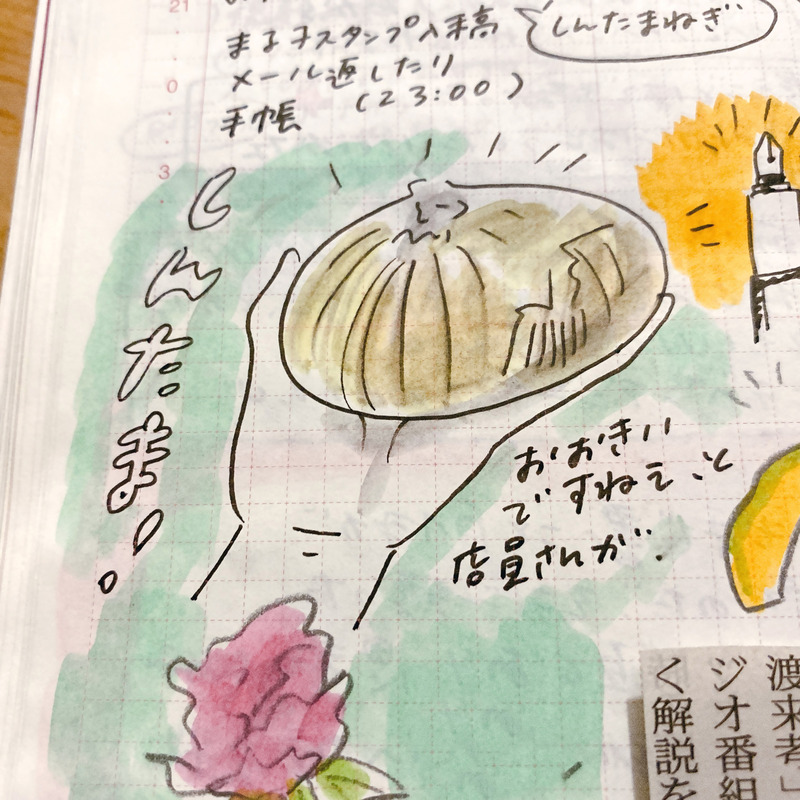 21
0
3
まる子スタンプ入稿
メール返したり
手帳 (23:00)
しんたまねぎ
しんたま!
おおきい
ですねえ、と
店員さんが。
渡来者」
ジオ番組
く解説を